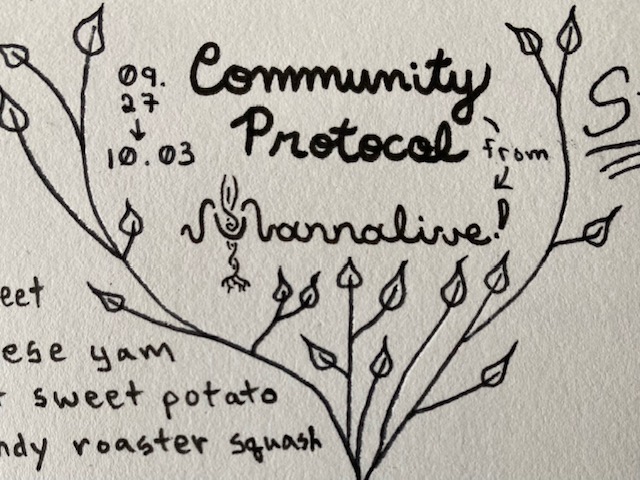 09.
27
↓
10.03
Community
Protocol
from
Mannalive!
eet
ese yam
sweet potato
ndy roaster squash
S